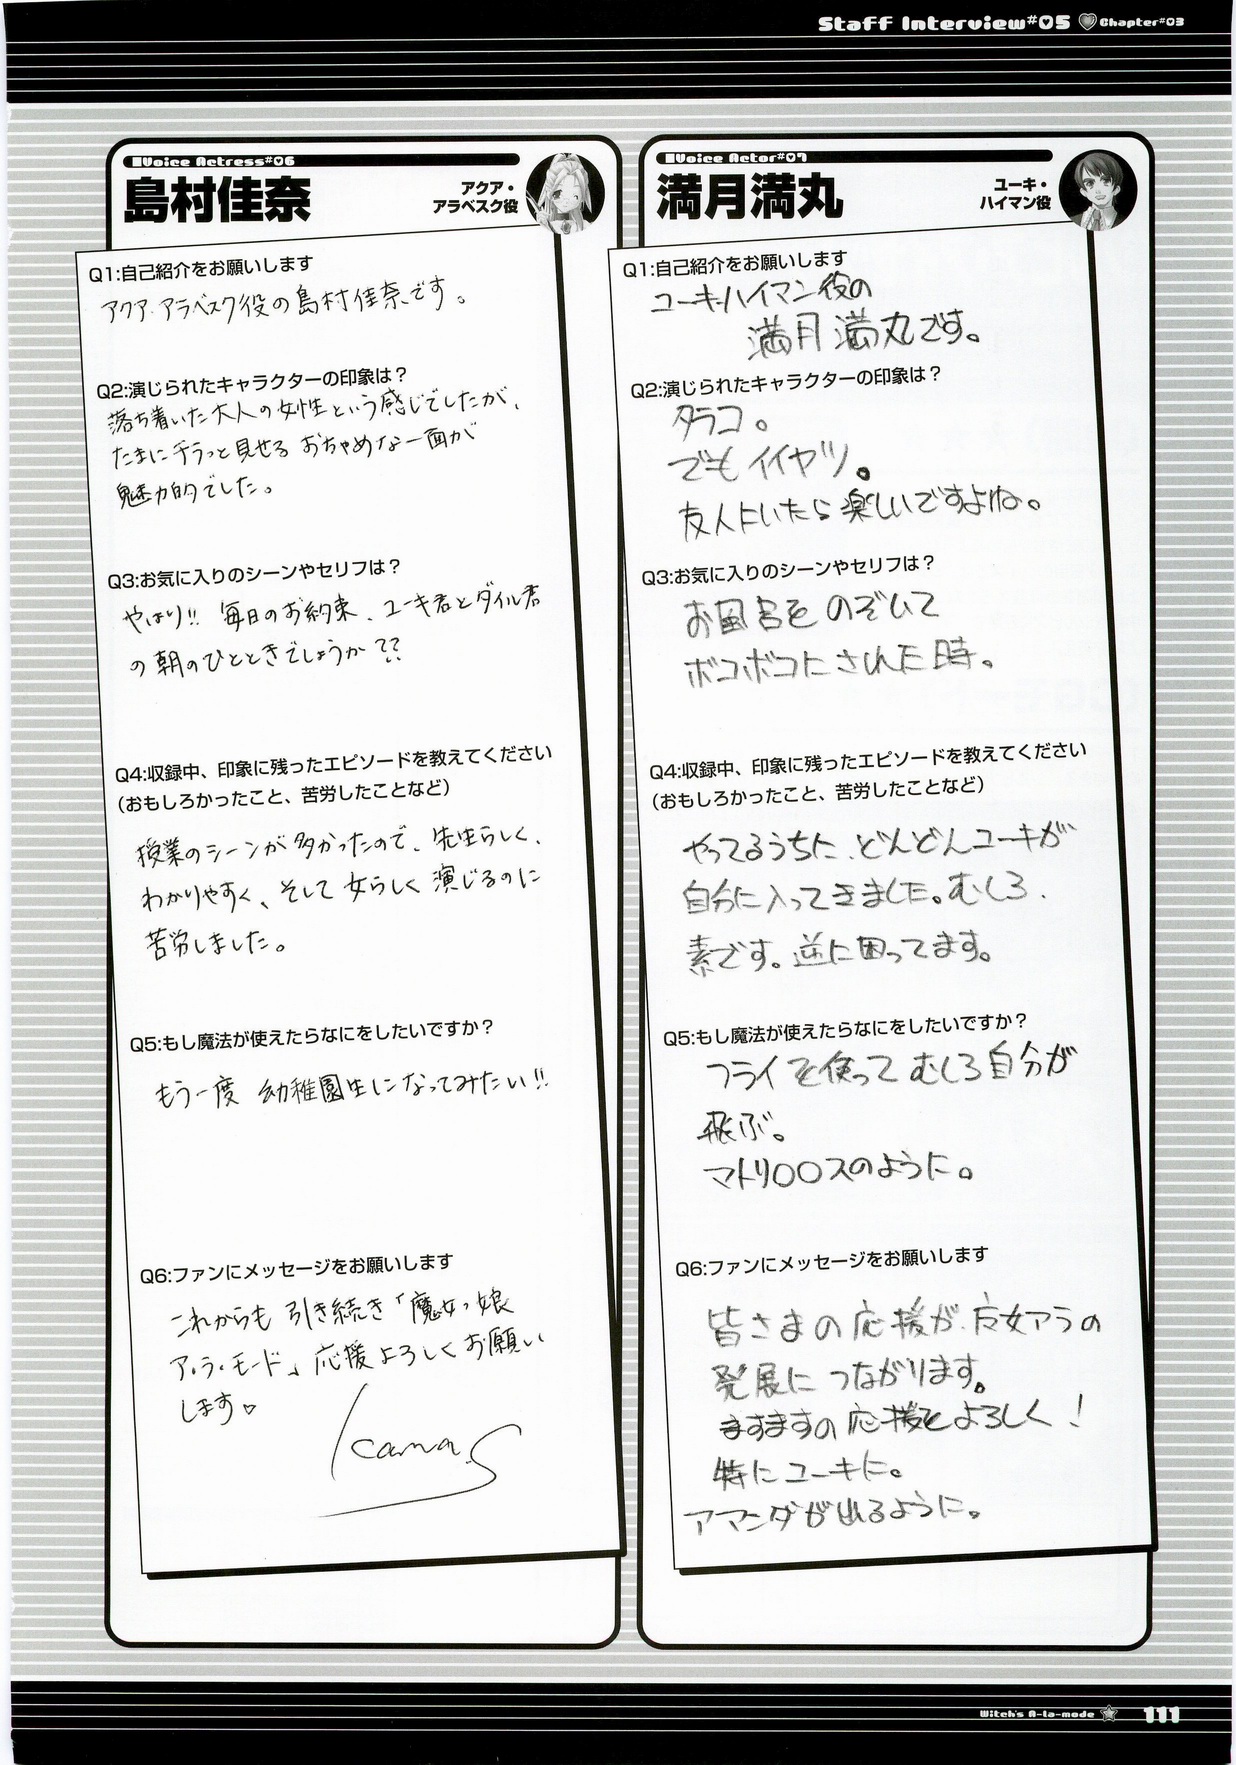 Staff Interview#05 Chapter#03
Voice Actress#06
島村佳奈
アクア・
アラベスク役
Q1:自己紹介をお願いします
アクア・アラベスク役の島村佳奈です。
Q2:演じられたキャラクターの印象は？
落ち着いた大人の女性という感じでしたが、
たまにチラっと見せる おちゃめな一面が
魅力的でした。
Q3:お気に入りのシーンやセリフは？
やはり!! 毎日のお約束、ユーキ君とダイル君
の朝のひとときでしょうか??
Q4:収録中、印象に残ったエピソードを教えてください
（おもしろかったこと、苦労したことなど）
授業のシーンが多かったので、先生らしく、
わかりやすく、そして女らしく演じるのに
苦労しました。
Q5:もし魔法が使えたらなにをしたいですか？
もう一度 幼稚園生になってみたい!!
Q6:ファンにメッセージをお願いします
これからも引き続き「魔女っ娘
ア・ラ・モード」応援よろしくお願い
します♡
Kana.S
Voice Actor#07
満月満丸
ユーキ・
ハイマン役
Q1:自己紹介をお願いします
ユーキ・ハイマン役の
満月満丸です。
Q2:演じられたキャラクターの印象は？
タラコ。
でもイイヤツ。
友人にいたら楽しいですよね。
Q3:お気に入りのシーンやセリフは？
お風呂をのぞいて
ボコボコにされた時。
Q4:収録中、印象に残ったエピソードを教えてください
（おもしろかったこと、苦労したことなど）
やってるうちに、どんどんユーキが
自分に入ってきました。むしろ、
素です。逆に困ってます。
Q5:もし魔法が使えたらなにをしたいですか？
フライを使ってむしろ自分が
飛ぶ。
マトリ○○スのように。
Q6:ファンにメッセージをお願いします
皆さまの応援が、女アラの
発展につながります。
ますますの応援をよろしく！
特にユーキに。
アマンダが出るように。
Witch's A-la-mode 111